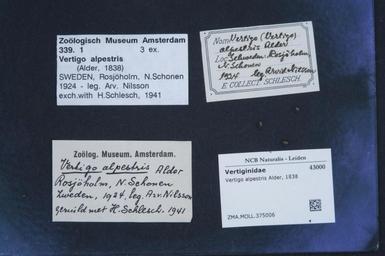 Zoölogisch Museum Amsterdam
339. 1 3 ex.
Vertigo alpestris
(Alder, 1838)
SWEDEN, Rosjöholm, N.Schonen
1924 - leg. Arv. Nilsson
exch.with H.Schlesch, 1941
Nom Vertigo (Vertigo)
alpestris Alder
Loc Schweden: Rosjöholm,
N. Schonen
1924 leg. Arvid Nilsson
E COLLECT. SCHLESCH.
Zoölog. Museum. Amsterdam.
Vertigo alpestris Alder
Rosjöholm, N. Schonen
Zweden, 1924, leg. Arv. Nilsson
geruild met H. Schlesch. 1941
NCB Naturalis - Leiden
Vertiginidae 43000
Vertigo alpestris Alder, 1838
ZMA.MOLL.375006